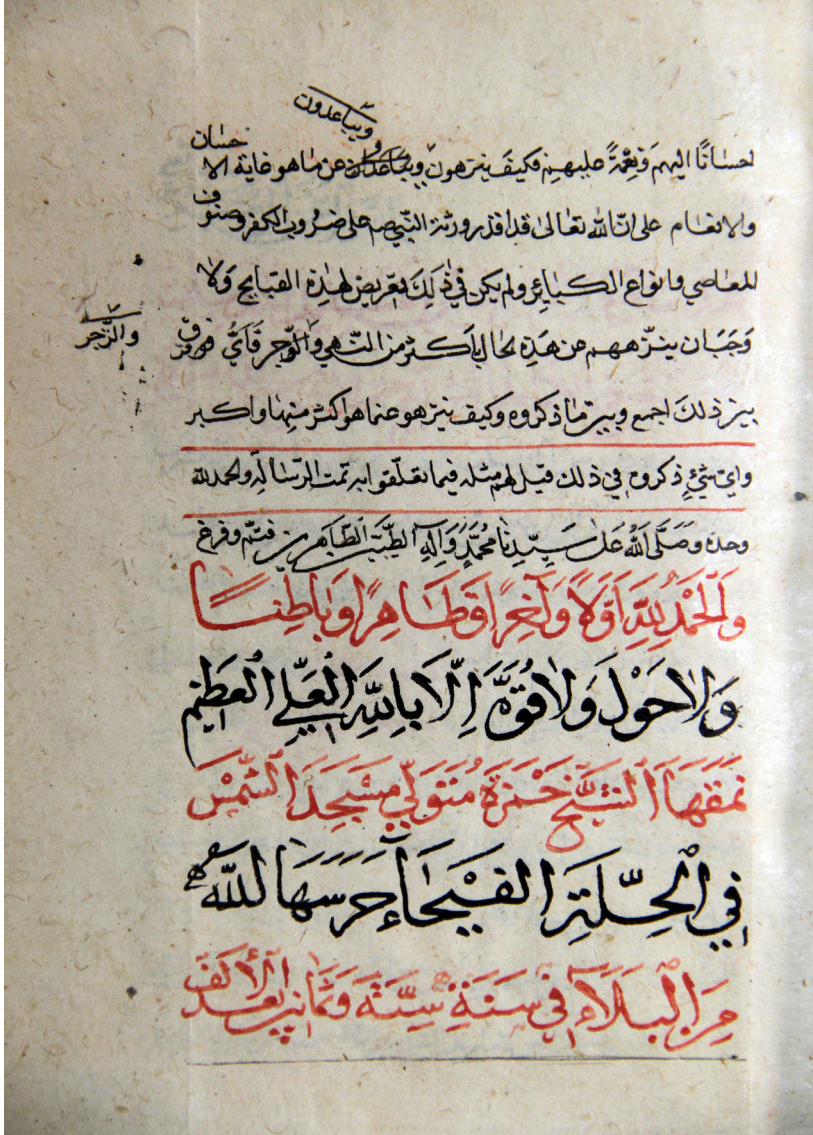 ويباعدون
احسانًا اليهم ونِعْمةً عليهم فكيف ينزهون ويباعدون عن ما هو غاية الاحسان
والانعام على ان الله تعالى قد اقدر ورثة النبي صم على ضروب الكفر وصنوف
المعاصي وانواع الكبائر ولم يكن في ذٰلِكَ تعريض لهذه القبايح ولا
وَجَبَ ان ينزّههم عن هَذِهِ الحال باكثر من النّهي والزجر فَأيُّ فرق
والزَّجر
بين ذلك اجمع وبين ما ذكروه وكيف ينزهو عنما هو اكثر منها واكبر
واي شيْءٍ ذكروه في ذلك قيل لهم مثله فيما تعلّقوا به تمت الرّسالة والحمد لله
وحده وصَلَّى اللهُ عَلىٰ سَيِّدِنَا مُحَمَّدٍ وَآلِهِ الطيّبين الطّاهرين فتتم وفرغ
وَالْحَمْدُ لِلّهِ اَوَّلاً وَآخِراً وَظَاهِرًا وَبَاطِنًا
وَلاٰ حَوْلَ وَلاٰ قُوَّةَ اِلّا بِاللهِ الْعَلِّي الْعَظِيم
نَمَّقَهَا الشَّيْخ حَمْزَة مُتَوَلِّي مَسْجِدَ الشَّمْسَ
فِي الْحِلَّةِ الفَيْحَآءِ حَرَسَهَا اللهُ
مِنَ الْبَلَآءِ فِي سَنَةِ سِتَّةَ وَثَمَانِين بَعْدَ الْأَلْف